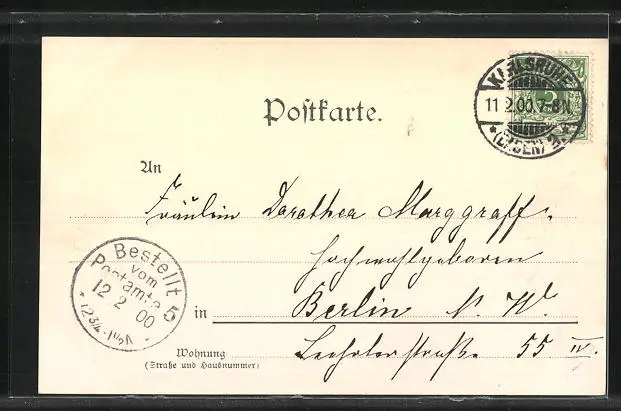 Postkarte.
KARLSRUHE
11 2.00.7-8N.
*(BADEN) 2*
5
An
Fräulein Dorothea Marggraff,
Hochwohlgeboren
Bestellt
vom
Postamte 5
12 2 00
* 12¾-1½N *
in Berlin N. W.
Wohnung
(Straße und Hausnummer)
Lehrterstraße 55 IV.